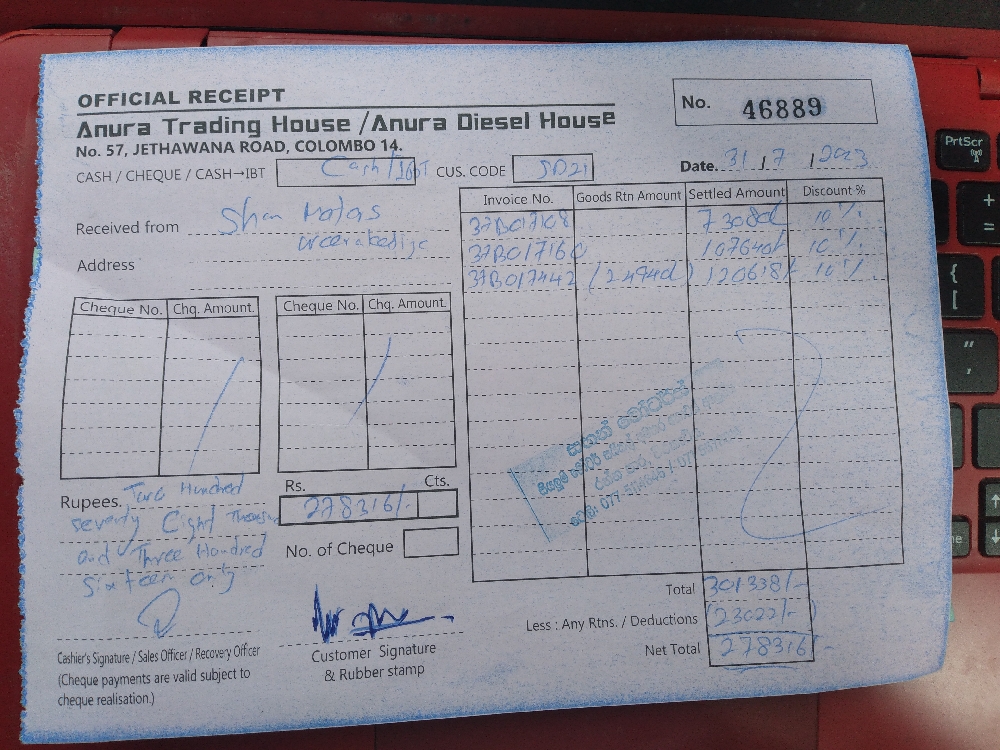 OFFICIAL RECEIPT
No. 46889
Anura Trading House / Anura Diesel House
No. 57, JETHAWANA ROAD, COLOMBO 14.
CASH / CHEQUE / CASH→IBT Cash / IBT CUS. CODE SD21 Date. 31 / 7 / 2023
Received from Shan Motors
Address
Invoice No. Goods Rtn Amount Settled Amount Discount %
37B017168 73080 10%
37B017160 107640/- 10%
37B017442 (24940) 120618/- 10%
Cheque No. Chq. Amount. Cheque No. Chq. Amount.
Rupees. Two Hundred
seventy Eight Thousand
and Three Hundred
Sixteen only
Rs. Cts.
278316/-
No. of Cheque
Total 301338/-
Less : Any Rtns. / Deductions (23022/-)
Net Total 278316/-
Cashier's Signature / Sales Officer / Recovery Officer
(Cheque payments are valid subject to
cheque realisation.)
Customer Signature
& Rubber stamp
PrtScr